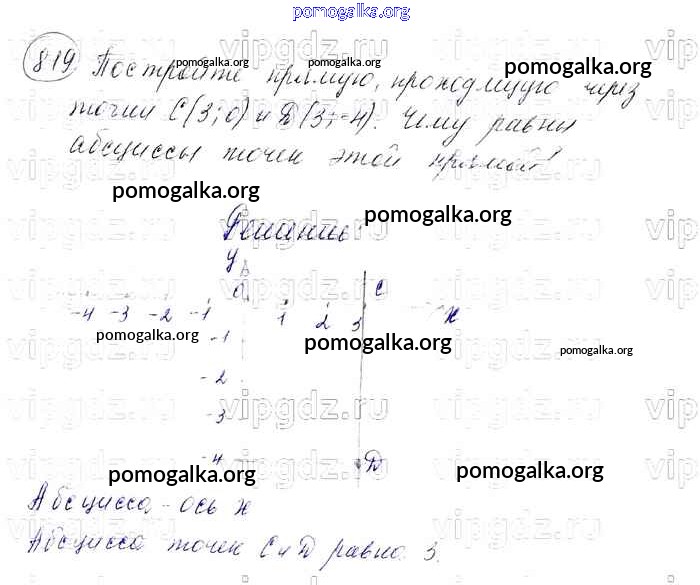 pomogalka.org
819 Постройте прямую, проходящую через
pomogalka.org
точки С(3; 0) и D(3; -4). Чему равны
абсциссы точек этой прямой?
pomogalka.org
pomogalka.org
Решение:
y
0 C
-4 -3 -2 -1 1 2 3 x
-1
pomogalka.org
pomogalka.org
pomogalka.org
-2
-3
-4 D
pomogalka.org
pomogalka.org
Абсцисса - ось х
Абсцисса точек С и D равна 3.
vipgdz.ru